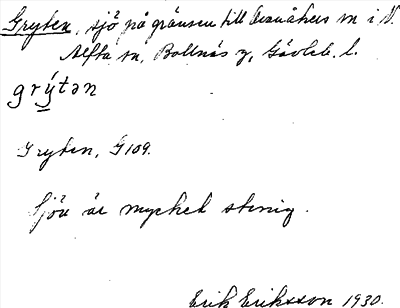 Gryten, sjö på gränsen till Svanåkers m i N.
Alfta sn, Bollnäs z, Gävleb. l.
grýtən
Gryten, G109.
Sjön är mycket stenig.
Erik Eriksson 1930.